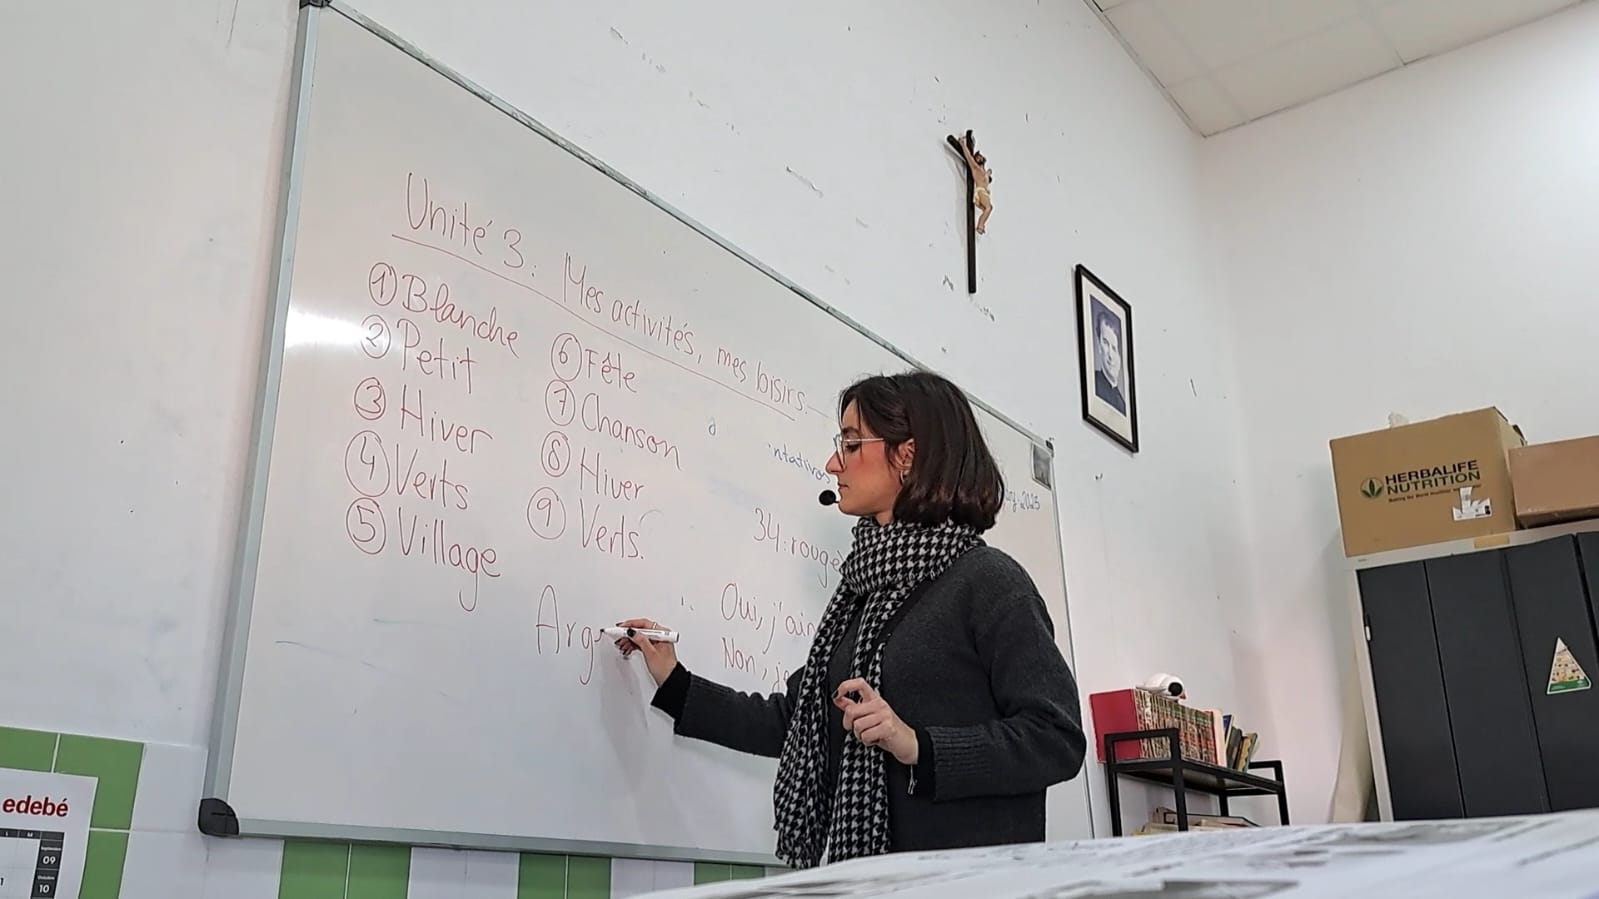 Unité 3: Mes activités, mes loisirs.
1 Blanche
2 Petit
3 Hiver
4 Verts
5 Village
6 Fête
7 Chanson
8 Hiver
9 Verts.
34: rouge
Oui, j'aim
Non, je
Arg
HERBALIFE
NUTRITION
edebé
09
10